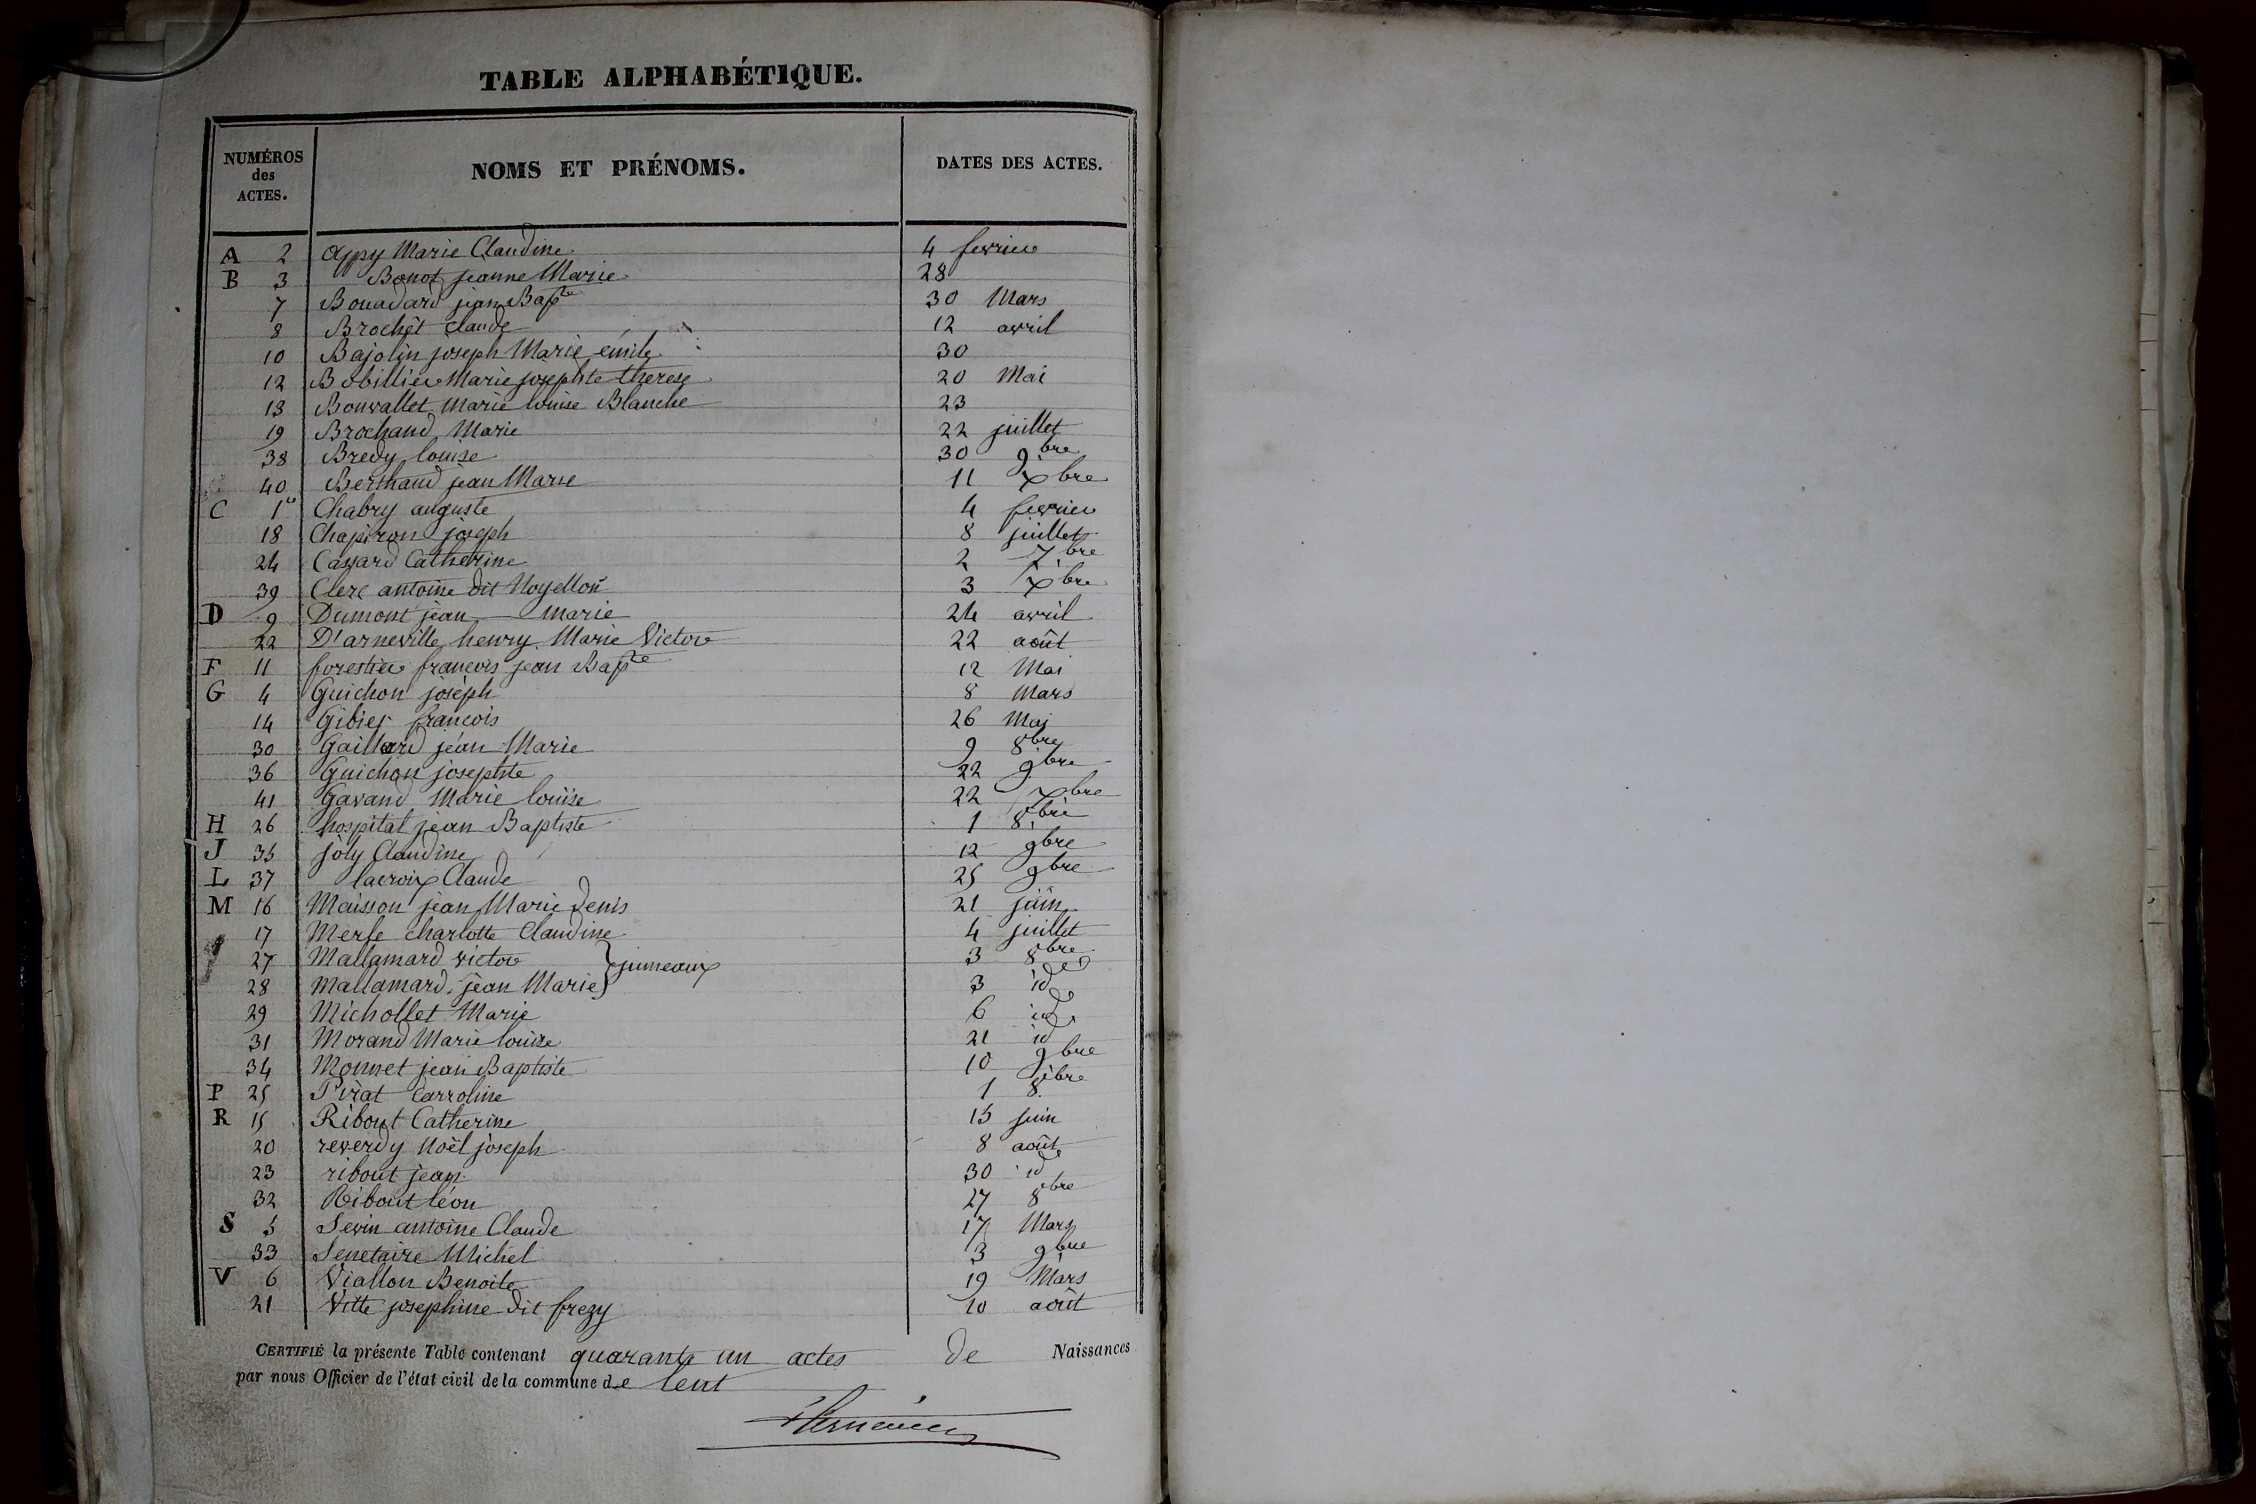 TABLE ALPHABÉTIQUE.
NUMÉROS des ACTES. NOMS ET PRÉNOMS. DATES DES ACTES.
A 2 Appy Marie Claudine 4 fevrier
B 3 Bonot jeanne Marie 28
7 Bouadard jean Bapte 30 Mars
8 Brochet Claude 12 avril
10 Bajolin joseph Marie émile 30
12 Bobillier Marie josephte therese 20 Mai
13 Bonvallet Marie louise Blanche 23
19 Brochand Marie 22 juillet
38 Bredy louise 30 9bre
40 Berthaud jean Marie 11 xbre
C 1er Chabry auguste 4 fevrier
18 Chapiron joseph 8 juillet
24 Cassard Catherine 2 7bre
39 Clerc antoine dit Noyellon 3 xbre
D 9 Dumont jean Marie 24 avril
22 D'arneville henry Marie Victor 22 août
F 11 forestier francois jean Bapte 12 Mai
G 4 Guichon joseph 8 Mars
14 Gibier francois 26 Mai
30 Gaillard jean Marie 9 8bre
36 Guichon josephte 22 9bre
41 Gavand Marie louise 22 xbre
H 26 hospital jean Baptiste 1 8bre
J 35 joly Claudine 12 9bre
L 37 lacroix Claude 25 9bre
M 16 Maisson jean Marie denis 21 juin
17 Merle charlotte Claudine 4 juillet
27 Mallamard victor } jumeaux 3 8bre
28 Mallamard jean Marie } 3 id
29 Michollet Marie 6 id
31 Morand Marie louise 21 id
34 Monnet jean Baptiste 10 9bre
P 25 Pirat Carroline 1 8bre
R 15 Ribout Catherine 15 juin
20 reverdy Noël joseph 8 août
23 ribout jean 30 id
32 Ribout léon 27 8bre
S 5 Sevin antoine Claude 17 Mars
33 Senetaire Michel 3 9bre
V 6 Viallon Benoite 19 Mars
21 Vitte josephine dit frezy 10 août
CERTIFIÉ la présente Table contenant quarante un actes de Naissances
par nous Officier de l'état civil de la commune de lent